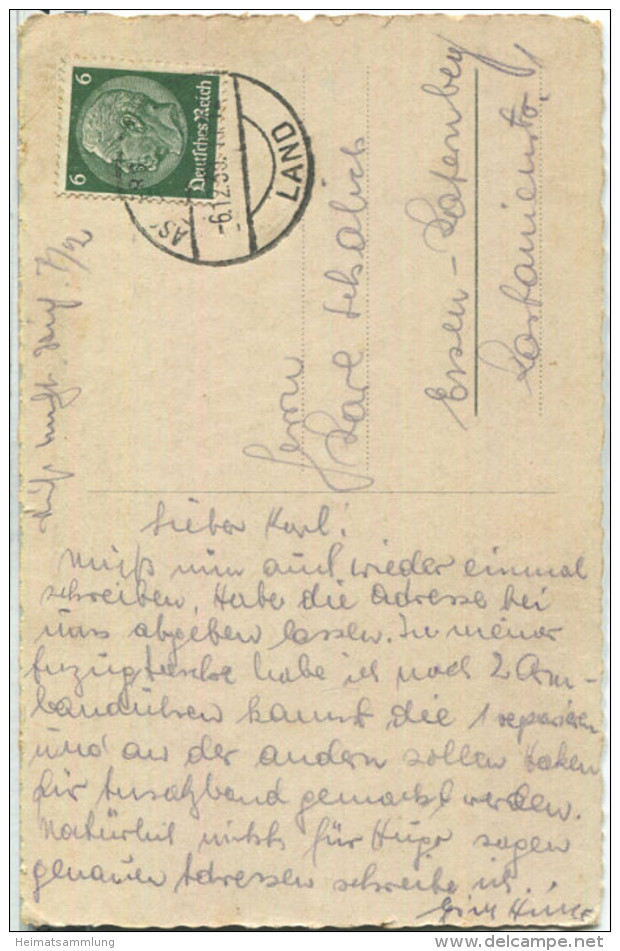 6 6
Deutsches Reich
-6.12.39.
LAND
Herrn
Karl
Essen-Katernberg
Kastanienstr. 1
Lieber Karl!
Muß nun auch wieder einmal
schreiben. Habe die Adresse bei
uns abgeben lassen. In meiner
habe ich noch 2 Arm-
banduhren kannst die 1 reparieren
und an der andern sollen Haken
für Ersatzband gemacht werden.
Natürlich nichts für Hugo sagen
genauen Adressen schreibe ich.
Heimatsammlung
delcampe.net